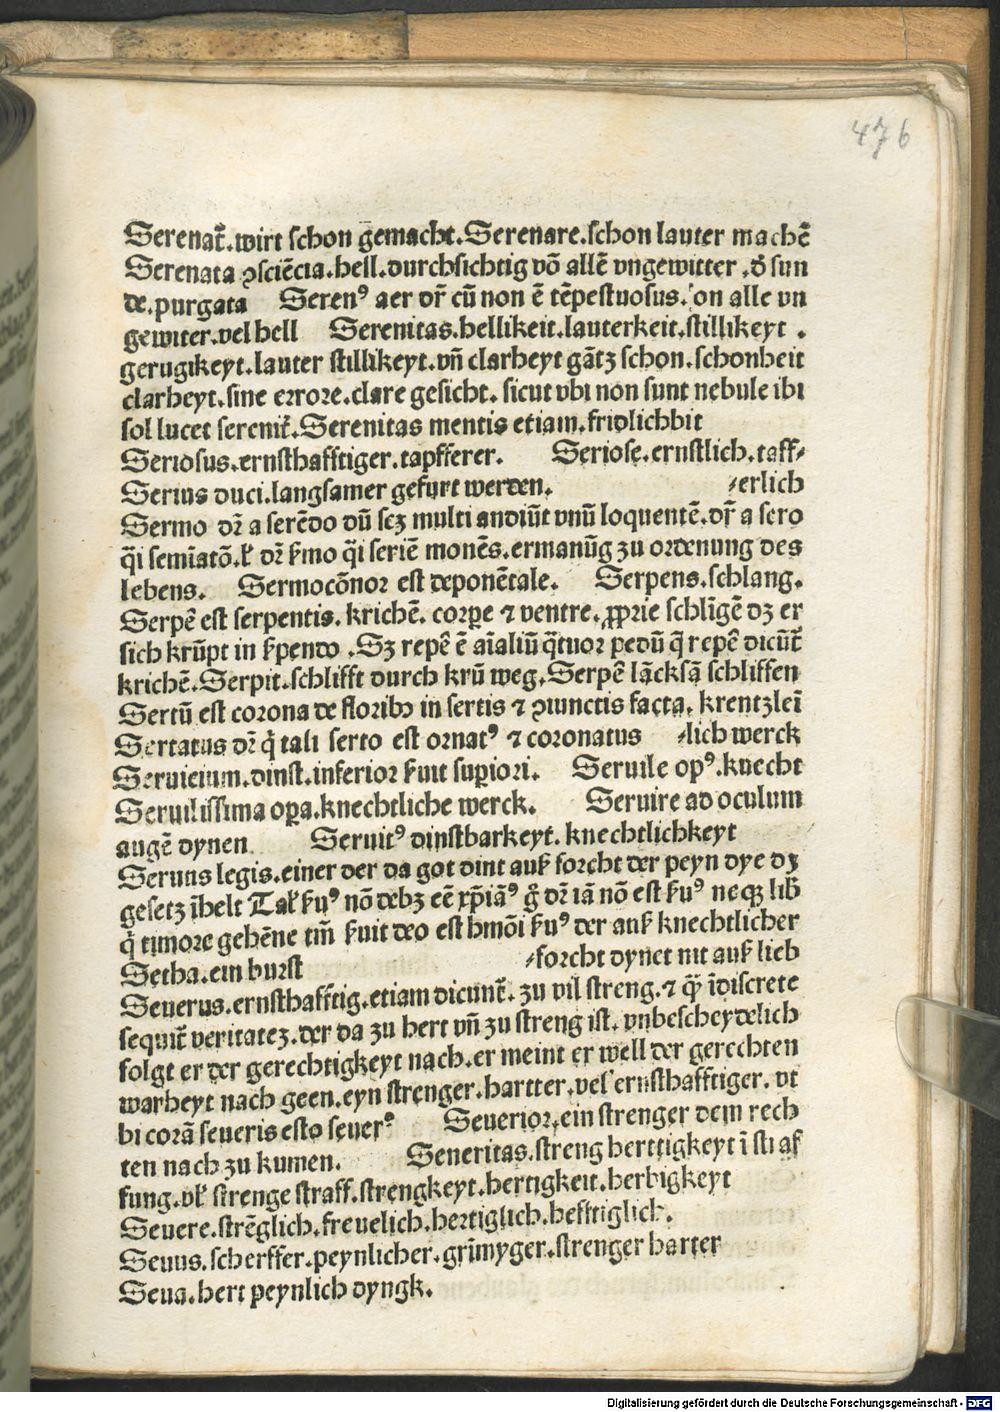 476
Serenat᷑.wirt schon gemacht.Serenare.schon lauter machē
Serenata ꝯsciēcia.hell.durchsichtig vō allē vngewitter .d᷑ sun
de.purgata Serenꝰ aer dr̄ cū non ē tēpestuosus. on alle vn
gewiter.vel hell Serenitas.hellikeit.lauterkeit.stillikeyt .
gerugikeyt.lauter stillikeyt.vn̄ clarheyt gātz schon.schonheit
clarheyt.sine errore.clare gesicht. sicut vbi non sunt nebule ibi
sol lucet serenit᷑.Serenitas mentis etiam.fridlichhit
Seriosus.ernsthafftiger.tapfferer. Seriose.ernstlich.taff⸗
Serius duci.langsamer gefurt werden. ⸗erlich
Sermo dr̄ a serēdo dū sez multi audiūt vnū loquentē.dr̄ a sero
q̄i semīatō.ł dr̄ ẜmo q̄i seriē monēs.ermanūg zu ordenung des
lebens. Sermocōnor est deponētale. Serpens.schlang.
Serpē est serpentis. krichē. corꝑe ⁊ ventre.ꝓprie schlīgē dz er
sich krūpt in ẜpendo .Sz repē ē aīaliū q̄tuor pedū q̄ repē dicūt᷑
krichē.Serpit.schlifft durch krū weg.Serpē lācksā schliffen
Sertū est corona de floribꝫ in sertis ⁊ ꝯiunctis facta. krentzleī
Sertatus dr̄ q̄ tali serto est ornatꝰ ⁊ coronatus ⸗lich werck
Seruicium.dinst.inferior ẜuit suꝑiori. Seruile opꝰ.knecht
Seruilissima oꝑa.knechtliche werck. Seruire ad oculum
augē dynen Seruitꝰ dinstbarkeyt.knechtlichkeyt
Seruus legis.einer der da got dint auß forcht der peyn dye dz
gesetz īhelt Talʼ ẜuꝰ nō debz eē xp̄iāꝰ gͦ dr̄ iā nō est ẜuꝰ neqꝫ lib᷑
q̄ timore gehēne tm̄ ẜuit deo est hmōi ẜuꝰ der auß knechtlicher
Setha.ein burst ⸗forcht dynet nit auß lieb
Seuerus.ernsthafftig.etiam dicunt᷑. zu vil streng.⁊ q̄ꝫ īdiscrete
sequit᷑ veritatez.der da zu hert vn̄ zu streng ist. vnbescheydelich
folgt er der gerechtigkeyt nach.er meint er well der gerechten
warheyt nach geen.eyn strenger.hartter.vel ernsthafftiger. vt
hi corā seueris esto seuerꝰ Seuerior.ein strenger dem rech
ten nach zu kumen. Seueritas.streng herttigkeyt ī straf
fung.vł strenge straff.strengkeyt.hertigkeit.herbigkeyt
Seuere.strēglich.freuelich.hertiglich.hefftiglich.
Seuus.scherffer.peynlicher.grīmyger.strenger harter
Seua.hert peynlich dyngk.
Digitalisierung gefördert durch die Deutsche Forschungsgemeinschaft - DFG